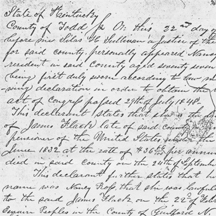 State of Kentucky
County of Todd On this 22nd day
before me Silas M. Sullivan a Justice of the
for said county personally appeared Nancy
resident in said County aged seventy seven
being first duly sworn according to law
ing declaration in order to obtain the
act of Congress passed 29th of July 1848.
This declarant states that she is the
of James Flack late of said county
pensioner of the United States
June 1832 at the rate of $36
died in said County on the 24th of Septem
The declarant further states that he
name was Nancy that she was lawful
to the said James Flack on the 22 of
Squire Peoples in the County of Guilford